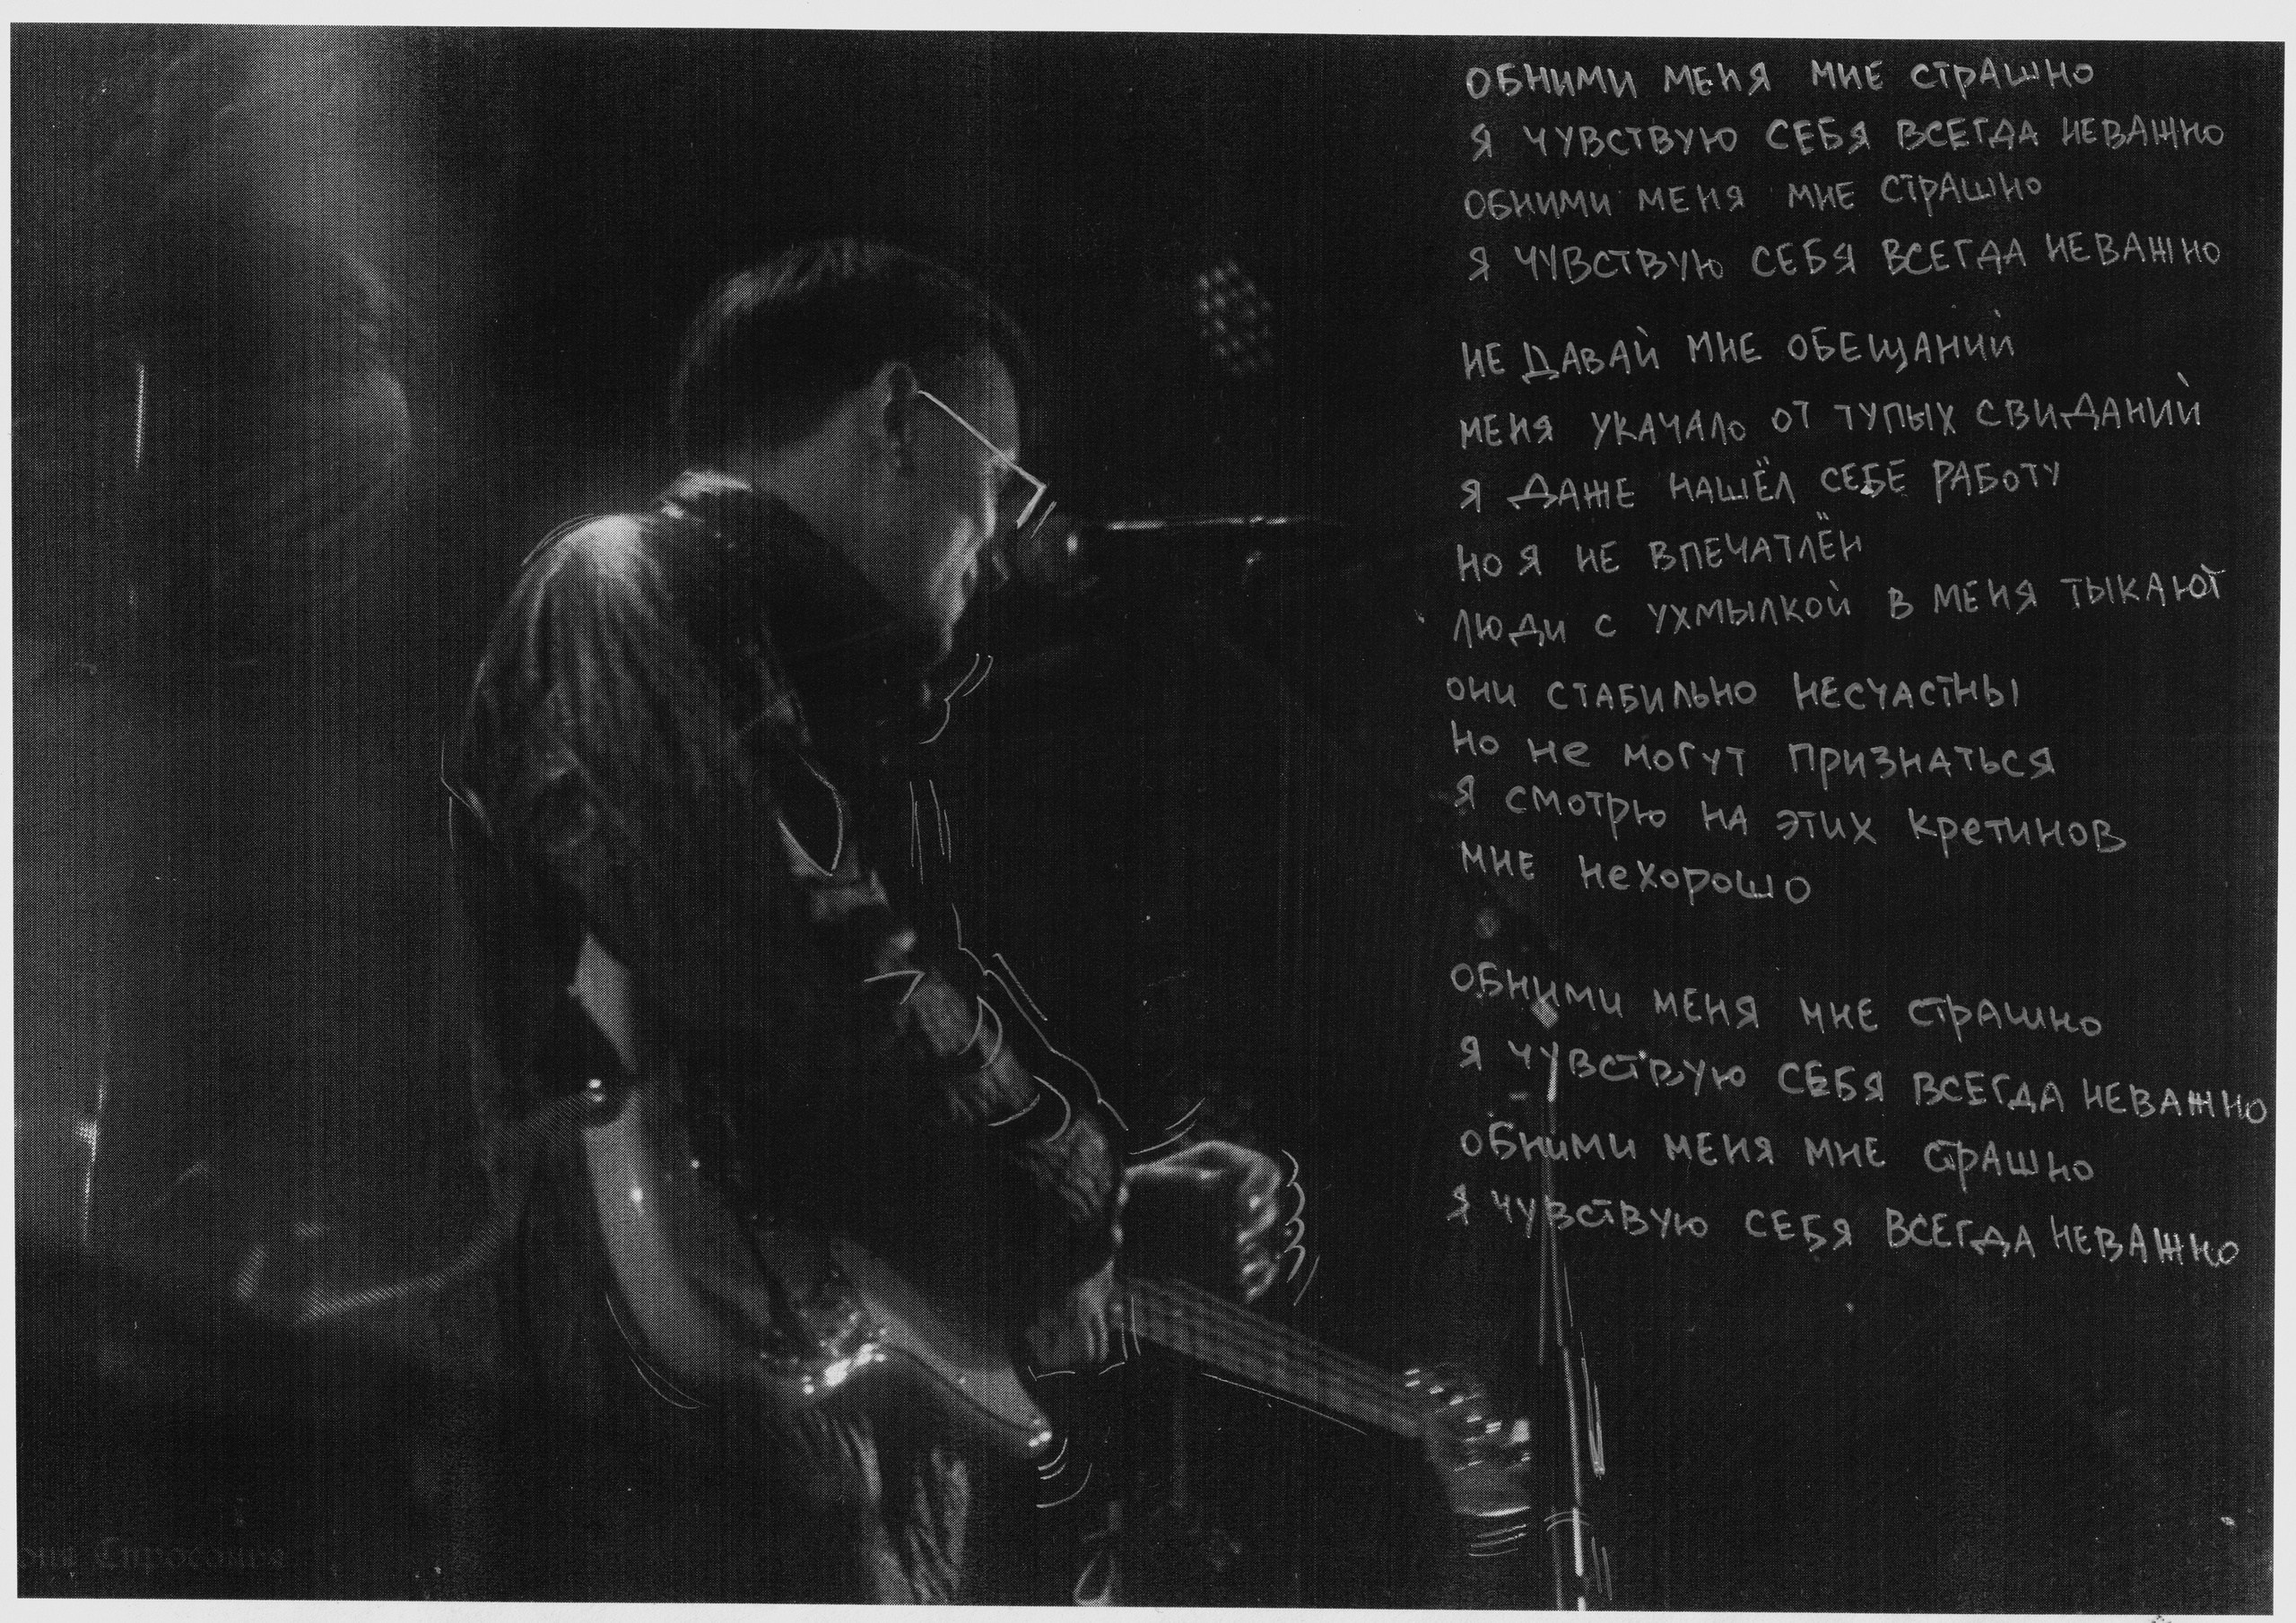 ОБНИМИ МЕНЯ МНЕ СТРАШНО
Я ЧУВСТВУЮ СЕБЯ ВСЕГДА НЕВАЖНО
ОБНИМИ МЕНЯ МНЕ СТРАШНО
Я ЧУВСТВУЮ СЕБЯ ВСЕГДА НЕВАЖНО
НЕ ДАВАЙ МНЕ ОБЕЩАНИЙ
МЕНЯ УКАЧАЛО ОТ ТУПЫХ СВИДАНИЙ
Я ДАЖЕ НАШЁЛ СЕБЕ РАБОТУ
НО Я НЕ ВПЕЧАТЛЁН
ЛЮДИ С УХМЫЛКОЙ В МЕНЯ ТЫКАЮТ
ОНИ СТАБИЛЬНО НЕСЧАСТНЫ
НО НЕ МОГУТ ПРИЗНАТЬСЯ
Я СМОТРЮ НА ЭТИХ КРЕТИНОВ
МНЕ НЕХОРОШО
ОБНИМИ МЕНЯ МНЕ СТРАШНО
Я ЧУВСТВУЮ СЕБЯ ВСЕГДА НЕВАЖНО
ОБНИМИ МЕНЯ МНЕ СТРАШНО
Я ЧУВСТВУЮ СЕБЯ ВСЕГДА НЕВАЖНО